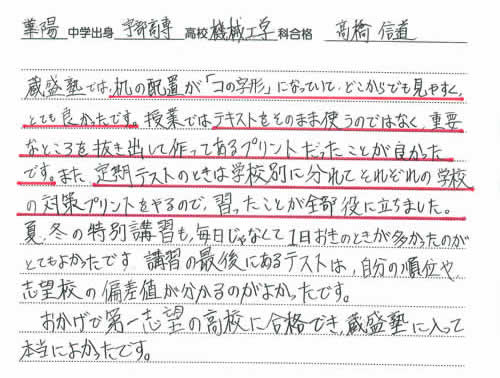 華陽 中学出身 宇部高専 高校 機械工学 科合格 高橋 信道
蔵盛塾では、机の配置が「コの字形」になっていて、どこからでも見やすく、
とても良かったです。授業ではテキストをそのまま使うのではなく、重要
なところを抜き出して作ってあるプリントだったことが良かった
です。また、定期テストのときは学校別に分れてそれぞれの学校
の対策プリントをやるので、習ったことが全部役に立ちました。
夏、冬の特別講習も、毎日じゃなくて1日おきのときが多かったのが
とてもよかったです 講習の最後にあるテストは、自分の順位や
志望校の偏差値が分かるのがよかったです。
おかげで第一志望の高校に合格でき、蔵盛塾に入って
本当によかったです。